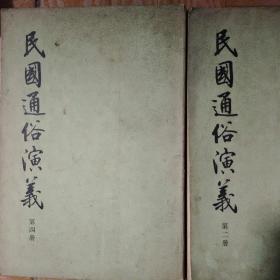 民國通俗演義
第四册
民國通俗演義
第二册